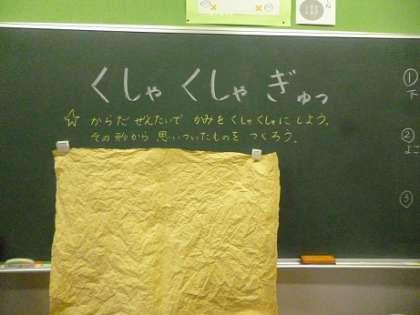 くしゃ くしゃ ぎゅっ
☆ からだ ぜんたいで かみを くしゃくしゃに しよう。
その形から 思いついたものを つくろう。
①
下
②
よこ
③